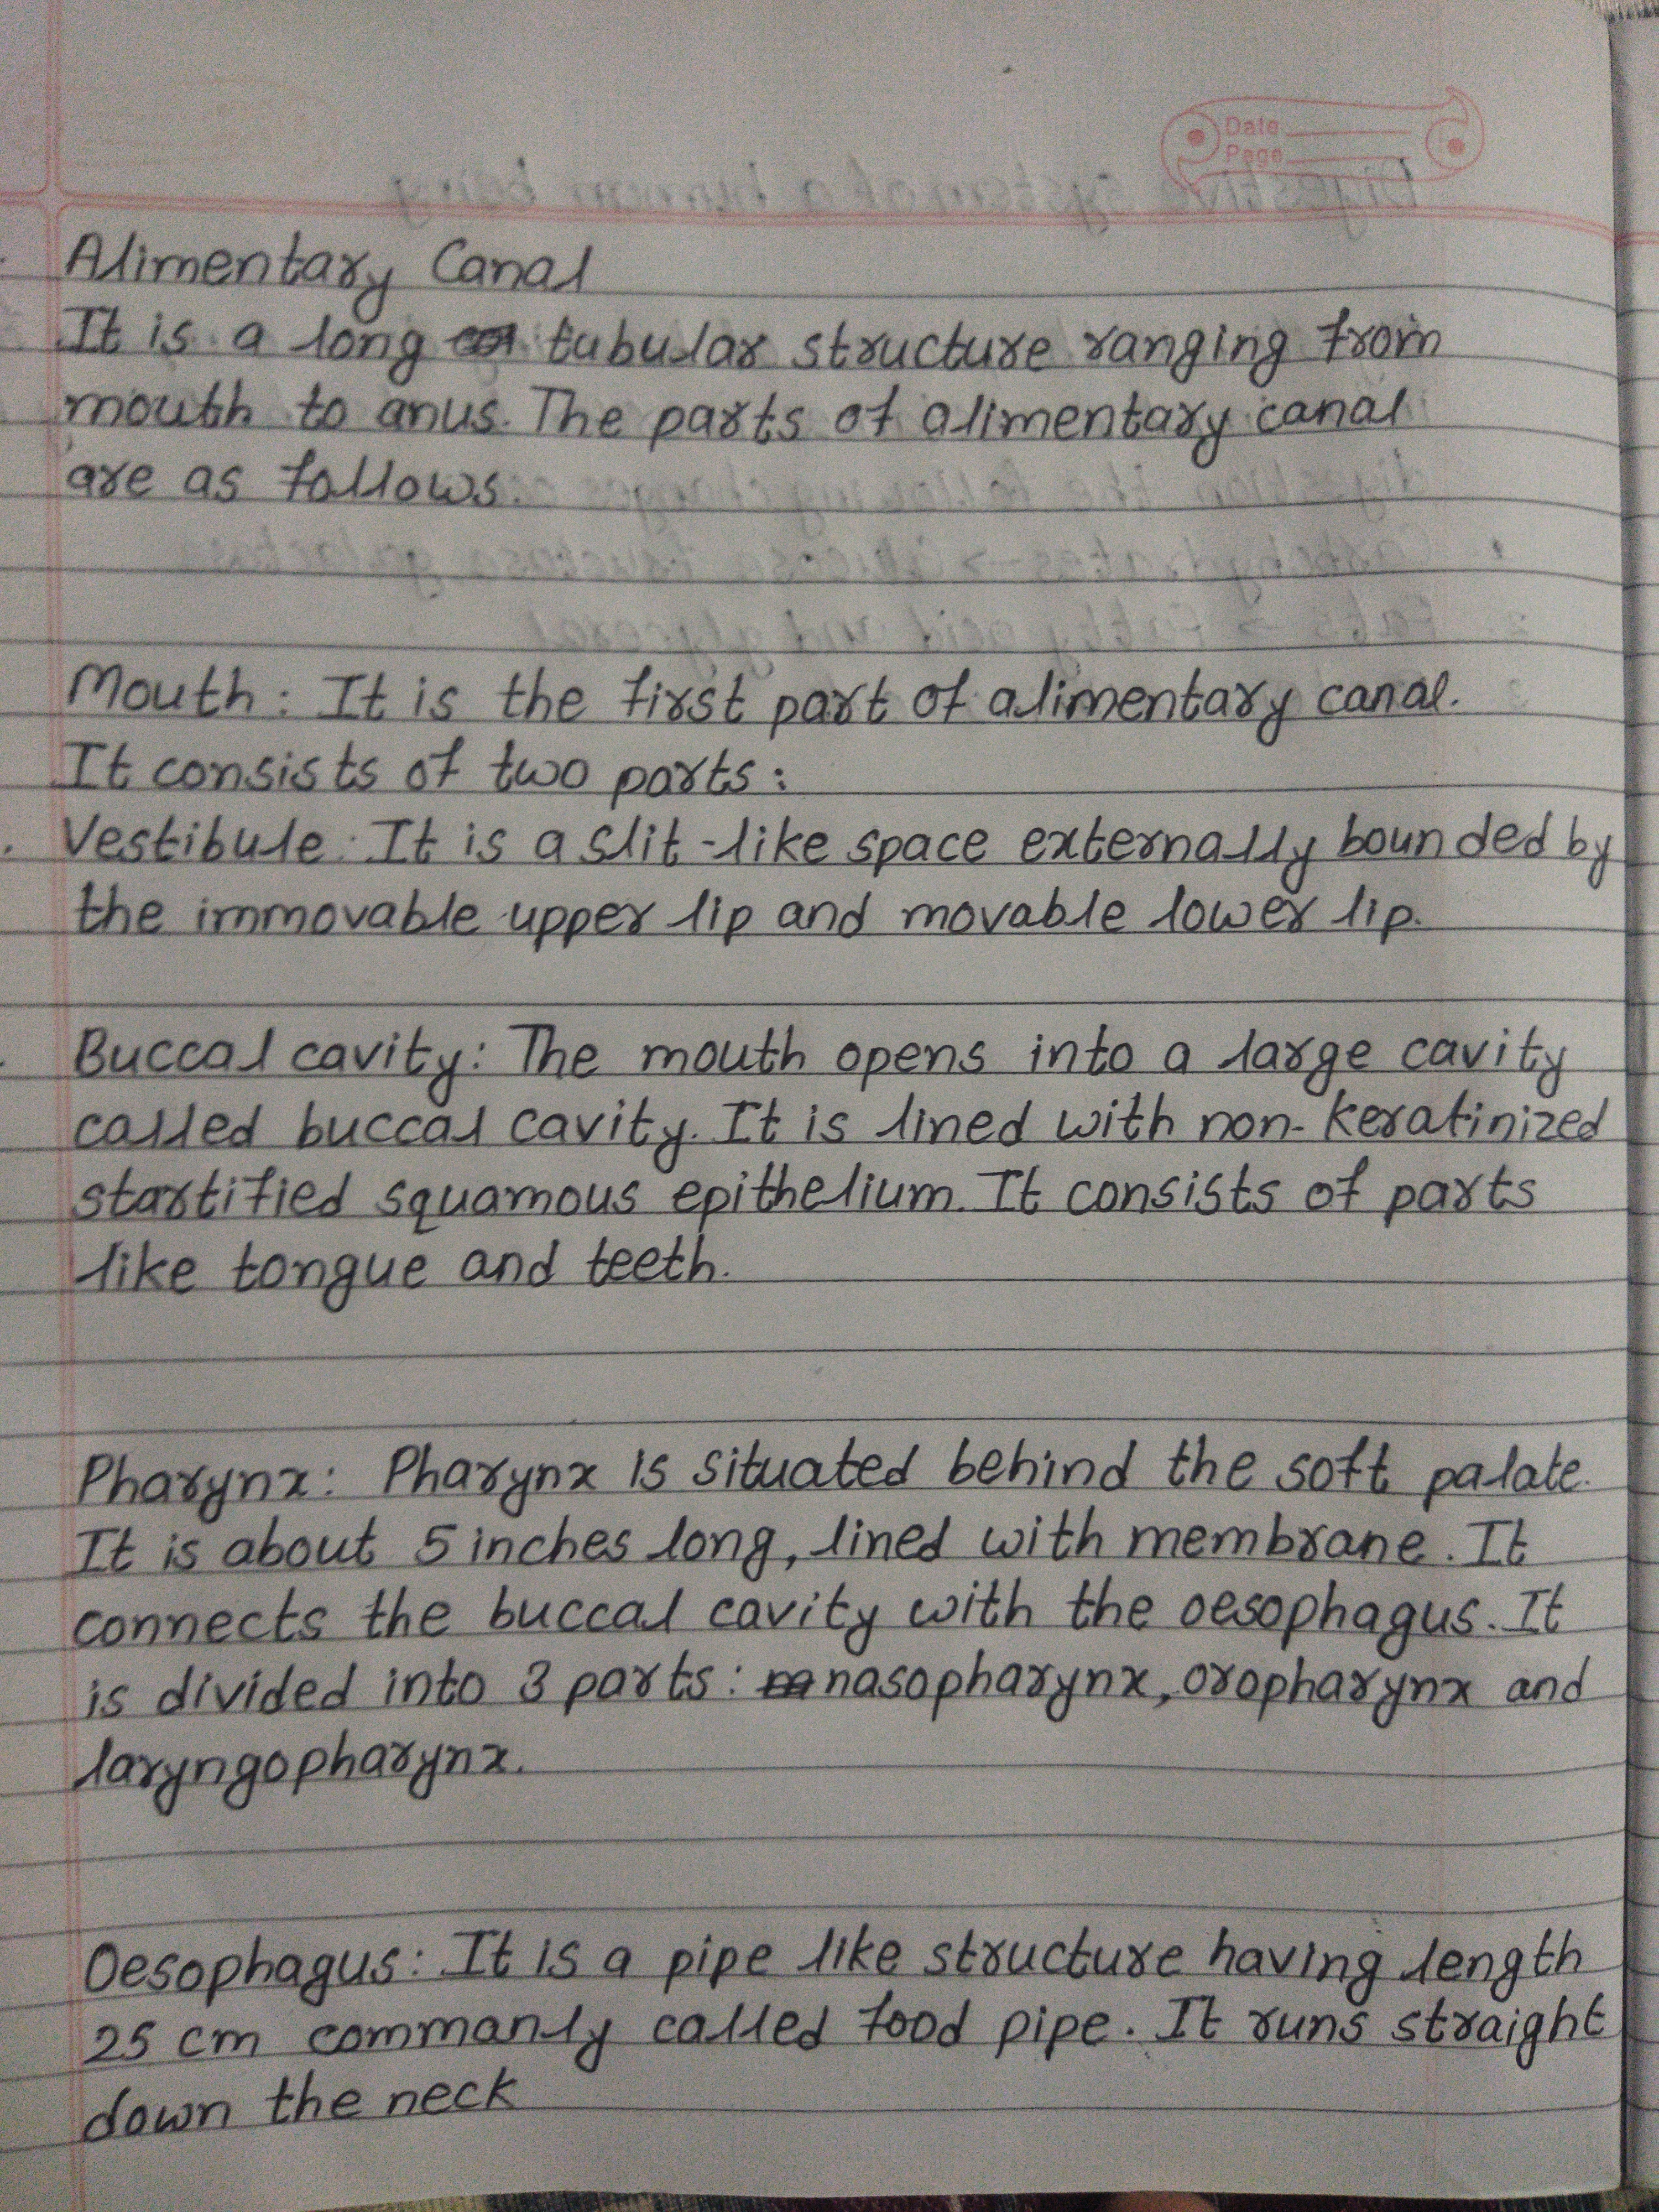 Date
Page
Alimentary Canal
It is a long tubular structure ranging from
mouth to anus. The parts of alimentary canal
are as follows.
Mouth: It is the first part of alimentary canal.
It consists of two parts:
Vestibule: It is a slit-like space externally bounded by
the immovable upper lip and movable lower lip.
Buccal cavity: The mouth opens into a large cavity
called buccal cavity. It is lined with non-keratinized
startified squamous epithelium. It consists of parts
like tongue and teeth.
Pharynx: Pharynx is situated behind the soft palate.
It is about 5 inches long, lined with membrane. It
connects the buccal cavity with the oesophagus. It
is divided into 3 parts: nasopharynx, oropharynx and
laryngopharynx.
Oesophagus: It is a pipe like structure having length
25 cm commanly called food pipe. It runs straight
down the neck